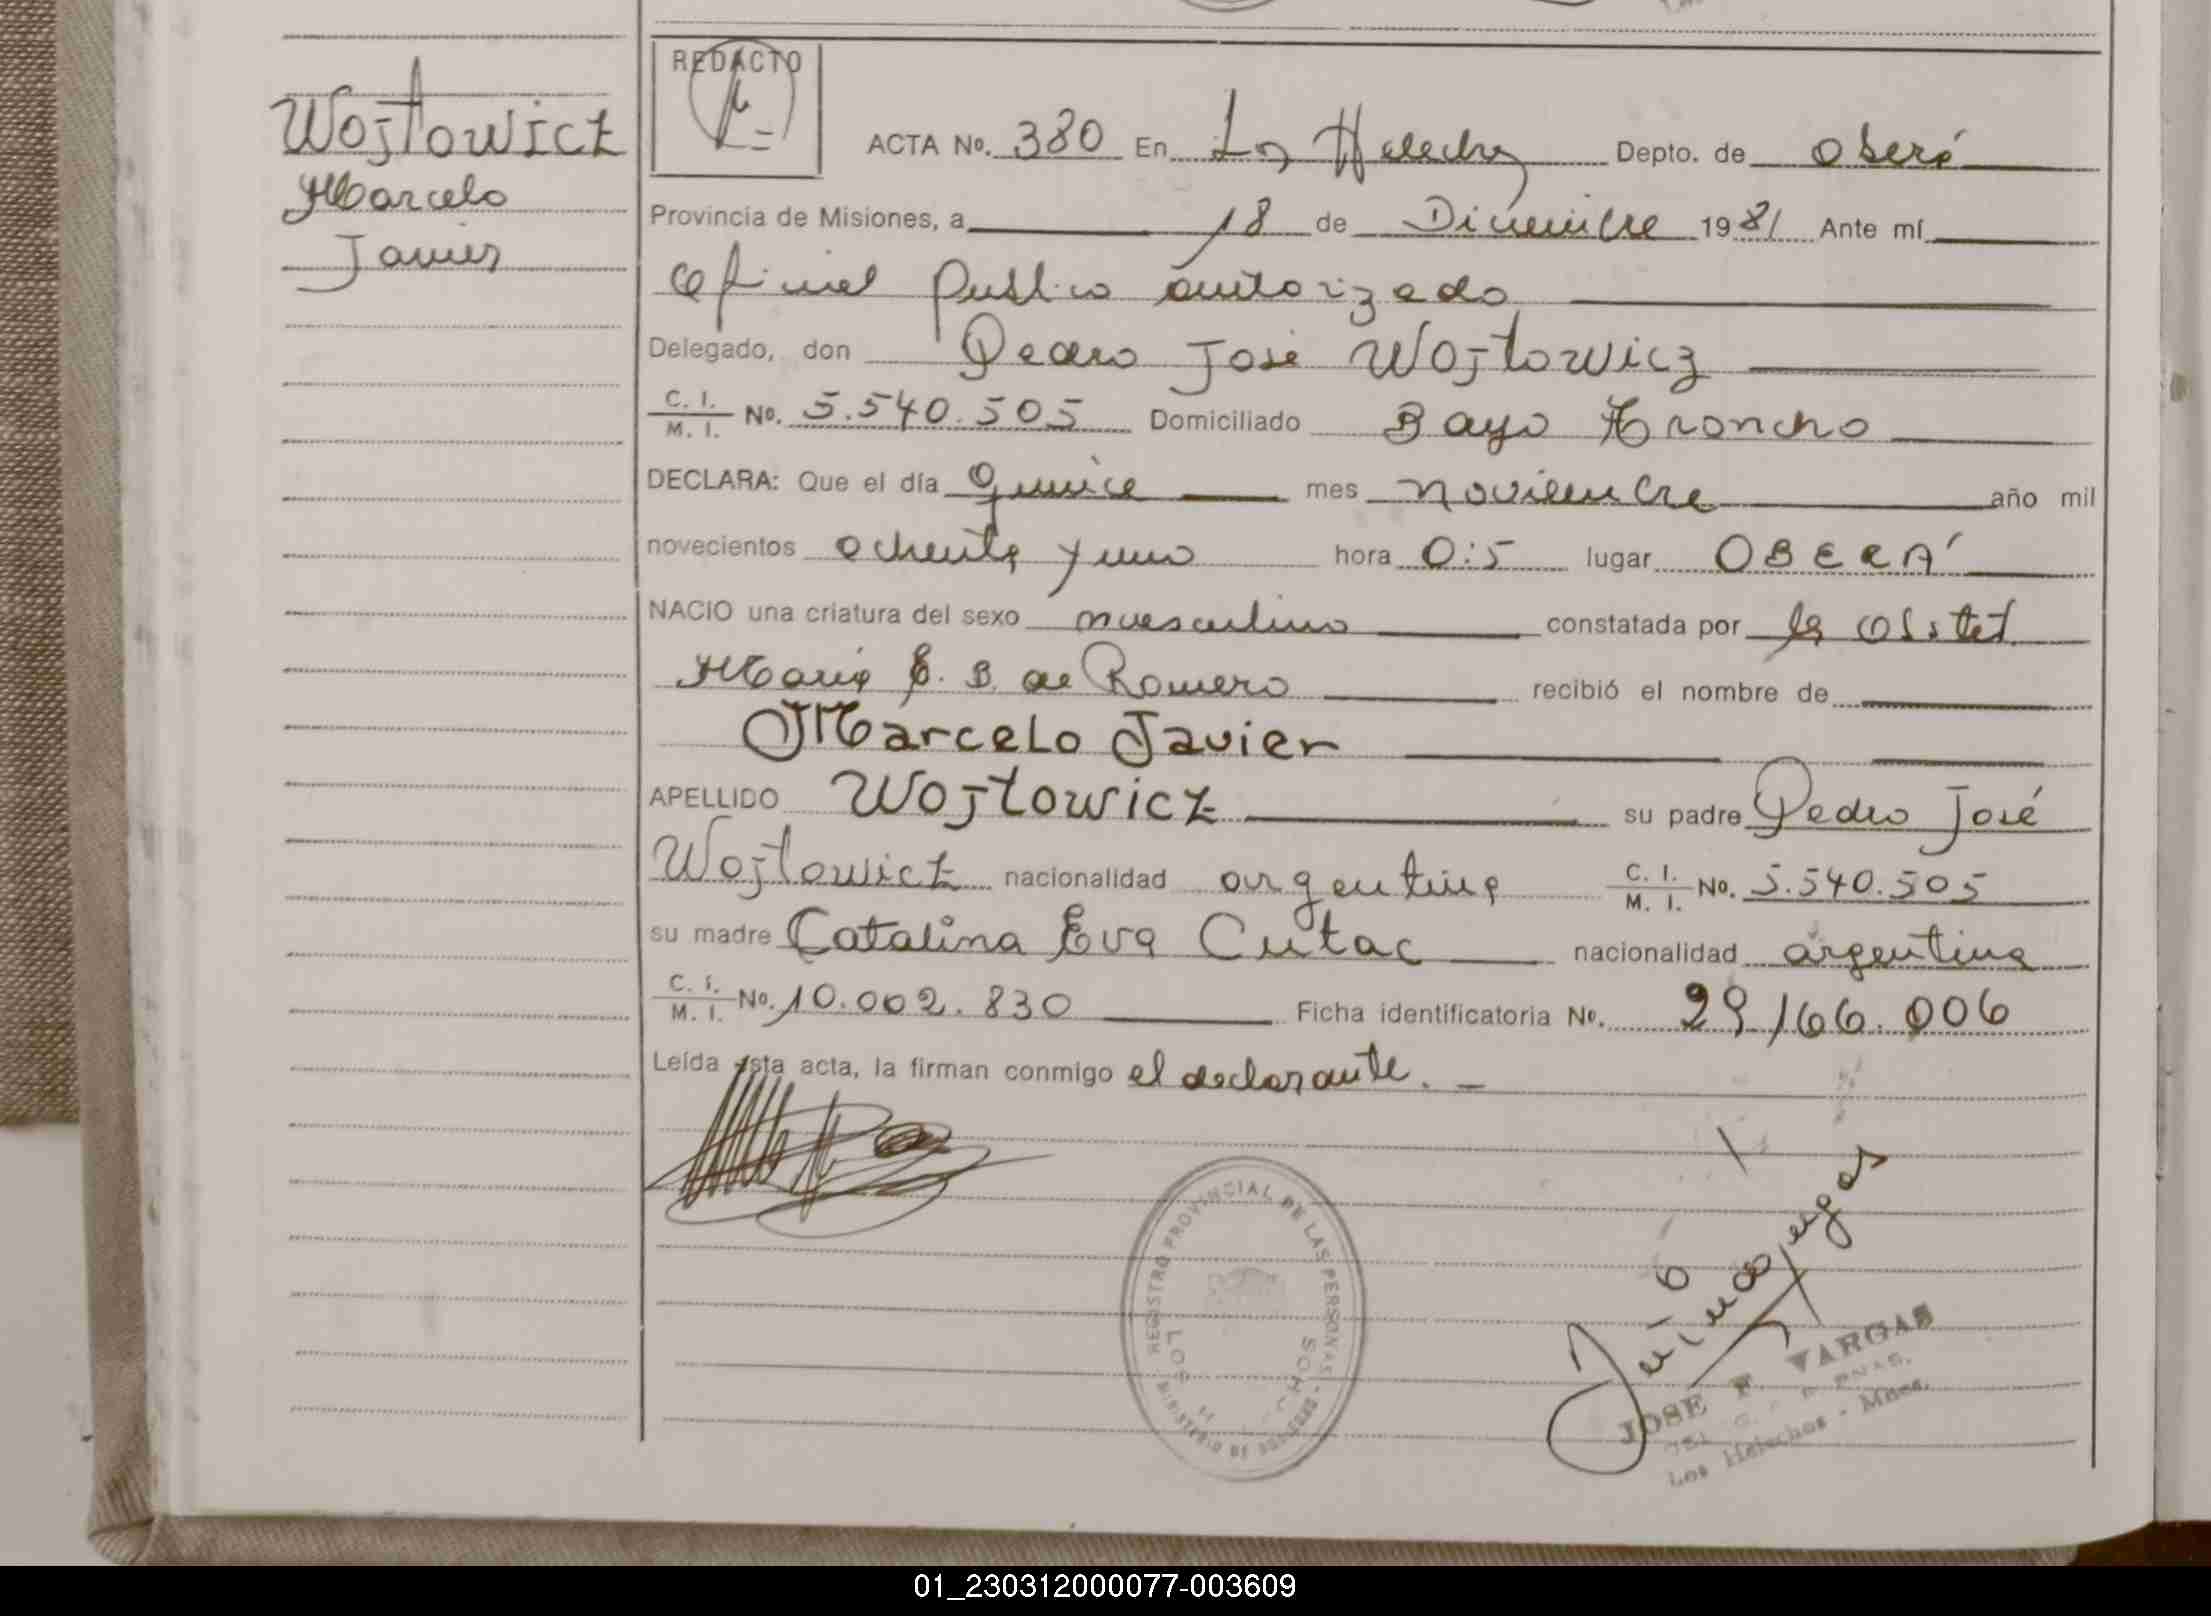 Wojtowicz
Marcelo
Javier
REDACTO
ACTA No. 380 En Los Helechos Depto. de Oberá
Provincia de Misiones, a 18 de Diciembre 1981 Ante mí
Oficial Publico autorizado
Delegado, don Pedro José Wojtowicz
C. I. / M. I. No. 5.540.505 Domiciliado Bayo Troncho
DECLARA: Que el día quince mes noviembre año mil
novecientos ochenta y uno hora 0:5 lugar OBERÁ
NACIO una criatura del sexo masculino constatada por la Obstet.
María E. B. de Romero recibió el nombre de
Marcelo Javier
APELLIDO Wojtowicz su padre Pedro José
Wojtowicz nacionalidad argentina C. I. / M. I. No. 5.540.505
su madre Catalina Eva Cutac nacionalidad argentina
C. I. / M. I. No. 10.002.830 Ficha identificatoria No. 29.166.006
Leída esta acta, la firman conmigo el declarante. -
REGISTRO PROVINCIAL DE LAS PERSONAS - MINISTERIO DE GOBIERNO
LOS
JOSE F. VARGAS
Los Helechos - Mnes.
01_230312000077-003609